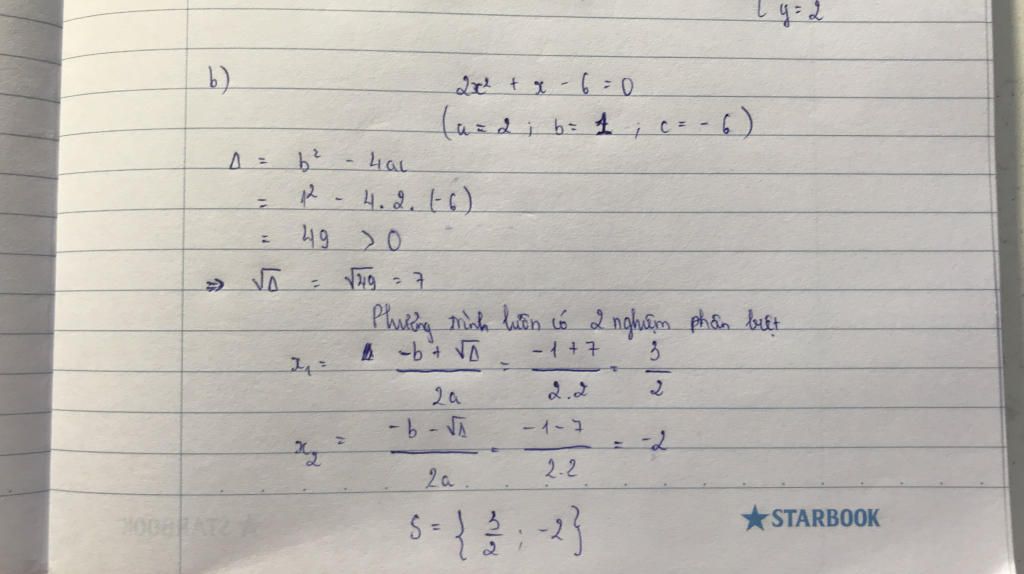 { y = 2
b) 2x² + x - 6 = 0
(a = 2 ; b = 1 ; c = - 6)
Δ = b² - 4ac
= 1² - 4.2.(-6)
= 49 > 0
⇒ √Δ = √49 = 7
Phương trình luôn có 2 nghiệm phân biệt
x₁ = (-b + √Δ)/(2a) = (-1 + 7)/(2.2) = 3/2
x₂ = (-b - √Δ)/(2a) = (-1 - 7)/(2.2) = -2
S = { 3/2 ; -2 }
★STARBOOK